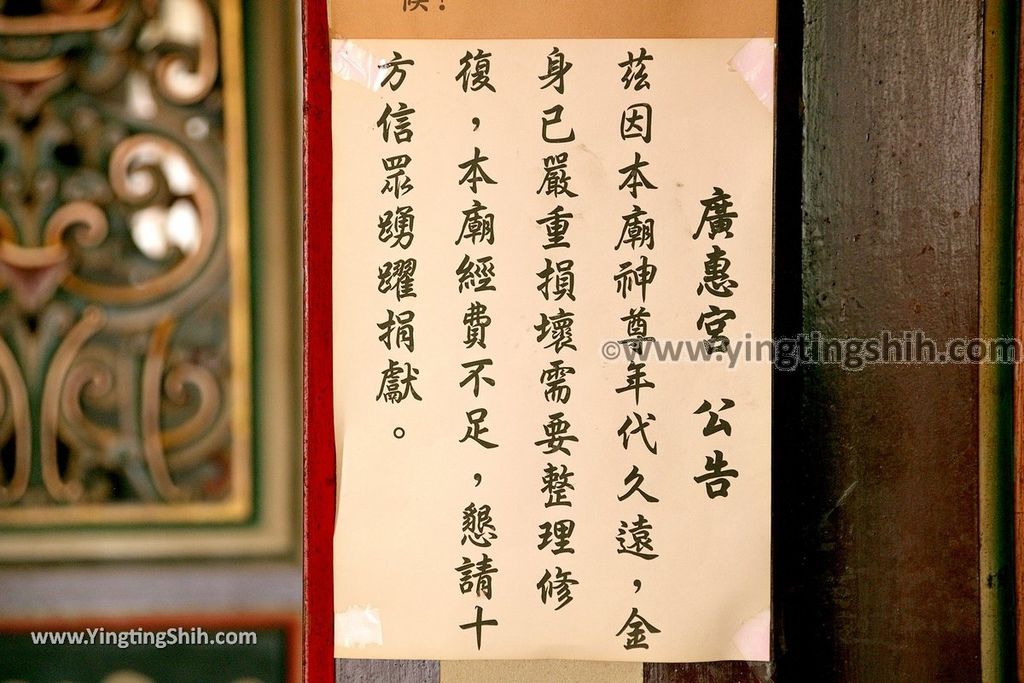 廣惠宮 公告
茲因本廟神尊年代久遠，金
身已嚴重損壞需要整理修
復，本廟經費不足，懇請十
方信眾踴躍捐獻。
©www.yingtingshih.com
www.YingtingShih.com